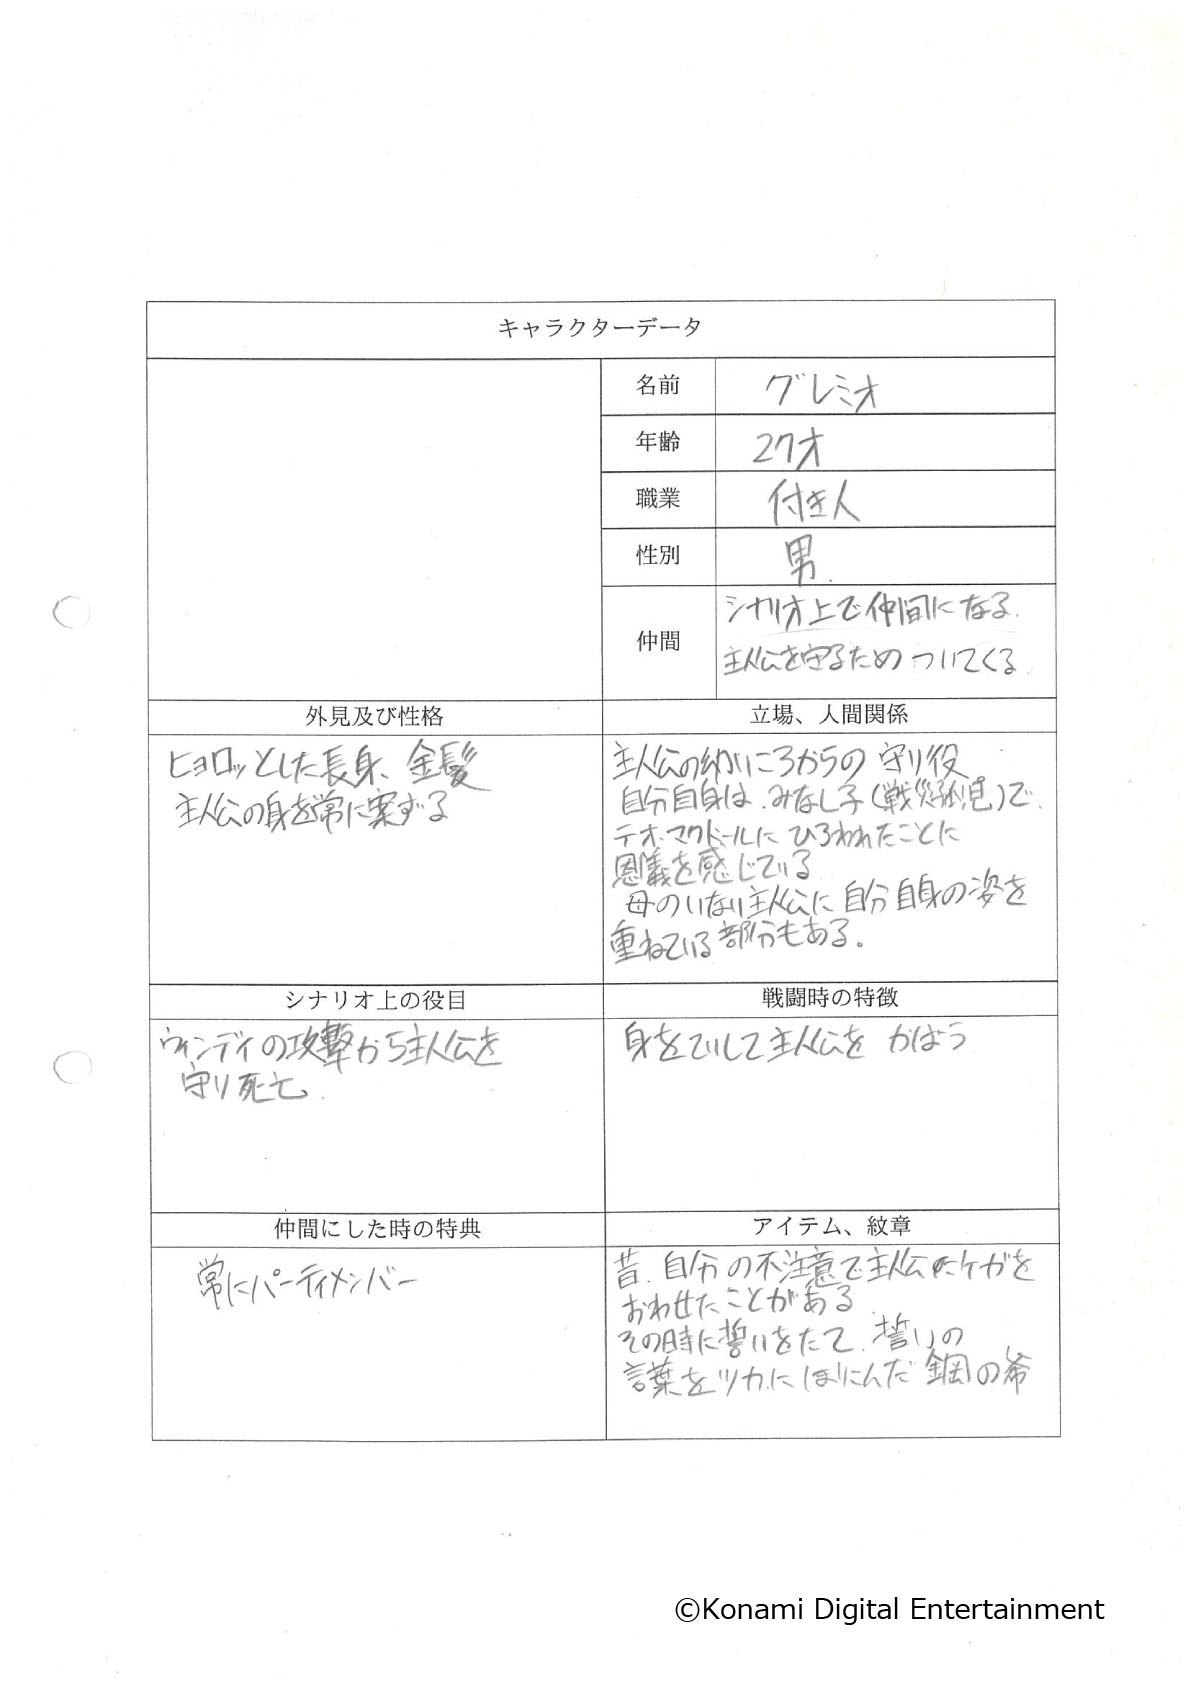 キャラクターデータ
名前 グレミオ
年齢 27才
職業 付き人
性別 男.
仲間
シナリオ上で仲間になる.
主人公を守るためついてくる
外見及び性格
ヒョロッとした長身、金髪
主人公の身を常に案ずる
立場、人間関係
主人公の幼いころからの守り役
自分自身は、みなし子(戦災孤児)で、
テオ・マクドールにひろわれたことに
恩義を感じている
母のいない主人公に自分自身の姿を
重ねている部分もある。
シナリオ上の役目
ウィンディの攻撃から主人公を
守り死亡.
戦闘時の特徴
身をていして主人公をかばう
仲間にした時の特典
常にパーティメンバー
アイテム、紋章
昔、自分の不注意で主人公にケガを
おわせたことがある
その時に誓いをたて、誓いの
言葉をツカにほりこんだ鋼の斧
©Konami Digital Entertainment